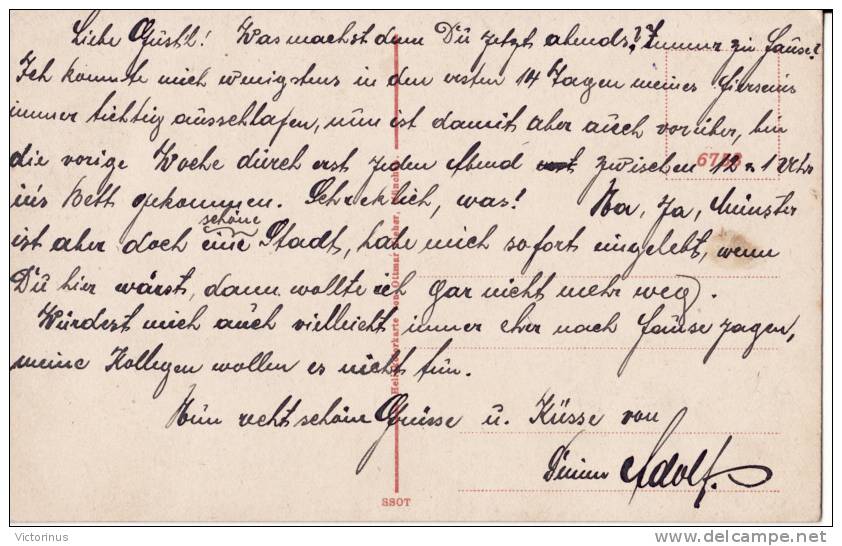 Liebe Gustl! Was machst denn Du jetzt abends? Immer zu Hause?
Ich konnte mich wenigstens in den ersten 14 Tagen meines Hierseins
immer tüchtig ausschlafen, nun ist damit aber auch vorüber, bin
die vorige Woche durch erst jeden Abend zwischen 12 u 1 Uhr
in's Bett gekommen. Schrecklich, was! Na, ja, Münster
schöne
ist aber doch eine Stadt, habe mich sofort eingelebt, wenn
Du hier wärst, dann wollte ich gar nicht mehr weg.
Würdest mich auch vielleicht immer eher nach Hause jagen,
meine Kollegen wollen es nicht tun.
Nun recht schöne Grüsse u. Küsse von
Deinem Adolf.
von Ottmar Zieher, München.
SSOT
Victorinus
delcampe.net